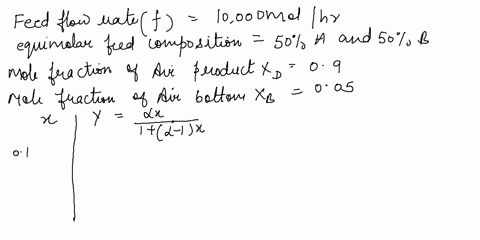 Feed flow rate (f) = 10,000 mol/hr
equimolar feed composition = 50% A and 50% B
Mole fraction of Air product X_D = 0.9
Mole fraction of Air bottom X_B = 0.05
x | Y = αx / 1+(α-1)x
0.1